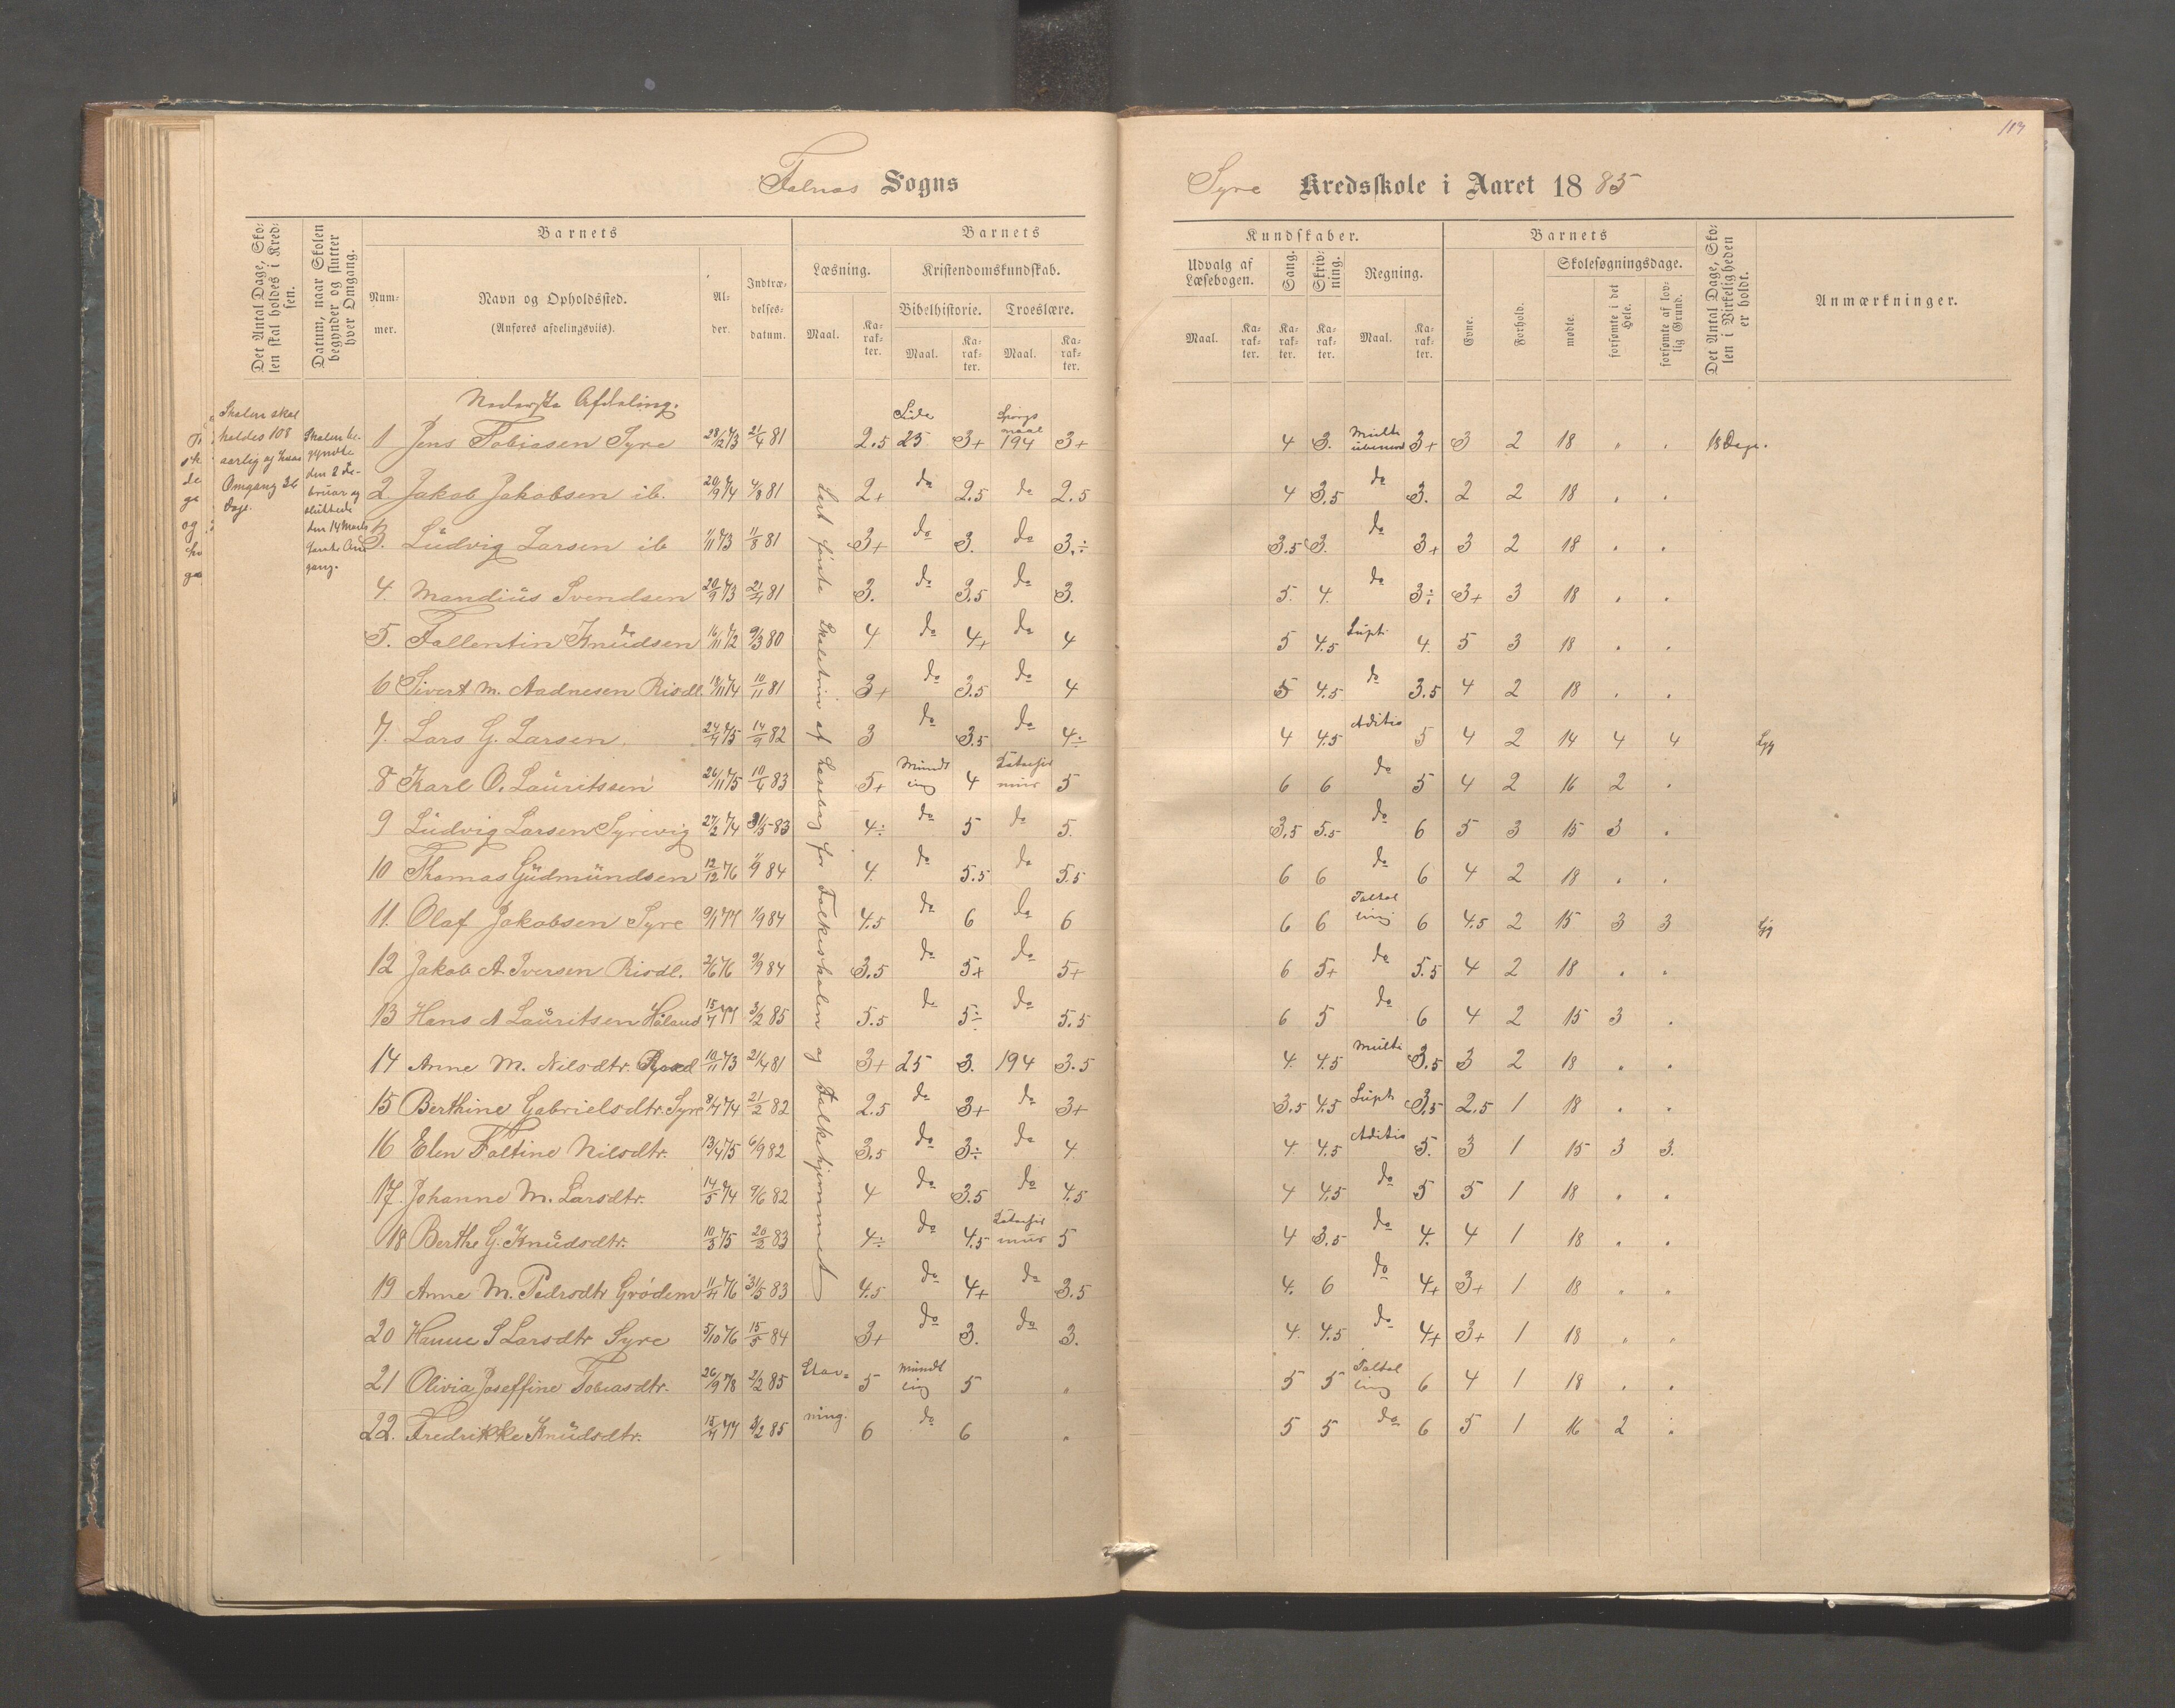 113
Falnes Sogns
Syre Kredsskole i Aaret 1885
Det Antal Dage, Skolen skal holdes i Kredsen.
Datum, naar Skolen begynder og slutter hver Omgang.
Barnets
Nummer.
Navn og Opholdssted.
(Anføres afdelingsviis).
Alder.
Indtrædelsesdatum.
Barnets
Læsning.
Kristendomskundskab.
Bibelhistorie.
Troeslære.
Maal.
Karakter.
Maal.
Karakter.
Maal.
Karakter.
Kundskaber.
Udvalg af Læsebogen.
Sang.
Skrivning.
Regning.
Maal.
Karakter.
Karakter.
Karakter.
Maal.
Karakter.
Barnets
Evne.
Forhold.
Skolesøgningsdage.
mødte.
forsømte i det Hele.
forsømte af lovlig Grund.
Det Antal Dage, Skolen i Virkeligheden er holdt.
Anmærkninger.
Skolen skal
holdes 108
aarlig og hver
Omgang 36
Dage.
Skolen be-
gyndte
den 2 Fe-
bruar og
sluttede
den 14 Marts
første Om
gang.
Nederste Afdeling.
Læst første Skoletrin af Læsebog for Folkeskolen og Folkehjemmet
1 Jens Tobiasen Syre 28/12 73 21/4 81 2.5 Side 25 3+ Spørgsmaal 194 3+ 4 3. Multi 3+ 3 2 18 " . 18 Dage.
2 Jakob Jakobsen ib. 20/9 74 4/8 81 2+ do 2.5 do 2.5 4 3.5 do 3. 2 2 18 . .
3. Ludvig Larsen ib 1/11 73 11/8 81 3+ do 3. do 3.÷ 3.5 3. do 3+ 3 2 18 . .
4. Mandius Svendsen 20/9 73 21/4 81 3. do 3.5 do 3. 5. 4. do 3÷ 3+ 3 18 . .
5. Fallentin Knudsen 16/11 72 9/3 80 4 do 4+ do 4 5 4.5 Supt. 4. 5 3 18 . .
6 Sivert M. Aadnesen Risdl. 18/11 74 10/11 81 3+ do 3.5 do 4 5 4.5 do 3.5 4 2 18 . .
7. Lars G. Larsen 24/4 75 14/9 82 3 do 3.5 do 4÷ 4 4.5 Aditio 5 4 2 14 4 4 Syg
8 Karl O. Lauritssen 26/11 75 10/4 83 5+ Mundtling 4 5 6 6 do 5 4 2 16 2 .
9 Ludvig Larsen Syrevig 27/2 74 31/5 83 4÷ do 5 do 5. 3.5 5.5 do 6 5 3 15 3 .
10 Thomas Gudmundsen 12/12 76 1/9 84 4. do 5.5 do 5.5 6 6 do 6 4 2 18 . .
11. Olaf Jakobsen Syre 9/1 77 1/9 84 4.5 do 6 do 6 6 6 Taltelling 6 4.5 2 15 3 3 Syg
12 Jakob A. Iversen Risdl. 2/6 76 9/9 84 3.5 do 5+ do 5+ 6 5+ do 5.5 4 2 18 . .
13 Hans A Lauritsen Håland 15/4 77 3/2 85 5.5 do 5÷ do 5.5 6 5 do 6 4 2 15 3 .
14 Anne M. Nilsdtr. 10/11 73 21/4 81 3+ 25 3. 194 3.5 4. 4.5 Multi 3.5 3 2 18 . .
15 Berthine Gabrielsdtr. Syre 8/4 74 21/2 82 2.5 do 3+ do 3+ 3.5 4.5 Supt. 3.5 2.5 1 18 . .
16 Elen Faltine Nilsdtr. 13/4 75 6/9 82 3.5 do 3÷ do 4 4. 4.5 Aditio 5. 3 1 15 3 3.
17. Johanne M. Larsdtr. 14/5 74 9/6 82 4 do 3.5 do 4.5 4 4.5 do 5 5 1 18 . .
18 Berthe G. Knudsdtr. 10/3 75 20/2 83 4÷ do 4.5 5 4 3.5 do 4. 4 1 18 . .
19 Anne M. Pedrsdtr Grødem 11/4 76 31/5 83 4.5 do 4+ do 3.5 4. 6 do 4+ 3+ 1 18 " "
20 Hanne S Larsdtr Syre 5/10 76 15/5 84 3+ do 3. do 3. 4. 4.5 do 4+ 3+ 1 18 " "
21 Olivia Joseffine Tobiasdtr. 26/9 78 2/2 85 Stav= 5 Mundtling 5 " 5 5 Taltelling 6 4 1 18 . .
22. Fredrikke Knudsdtr. 15/4 77 9/2 85 ning. 6 do 6 " 5 5 do 6 5 1 16 2 .